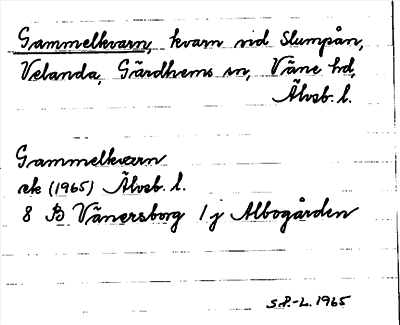 Gammelkvarn, kvarn vid Slumpån,
Velanda, Gärdhems sn, Väne hd,
Älvsb. l.
Gammelkvarn
ek (1965) Älvsb. l.
8 B Vänersborg 1 j Albogården
S.P.-L. 1965